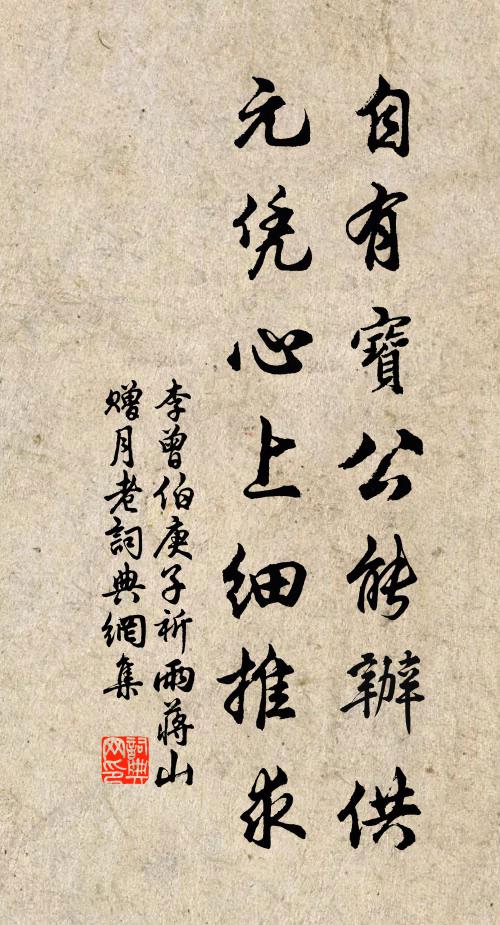 自有寶公能辦供
元凭心上細推求
李曾伯庚子祈雨蔣山
贈月老詞典網集
詞典網印